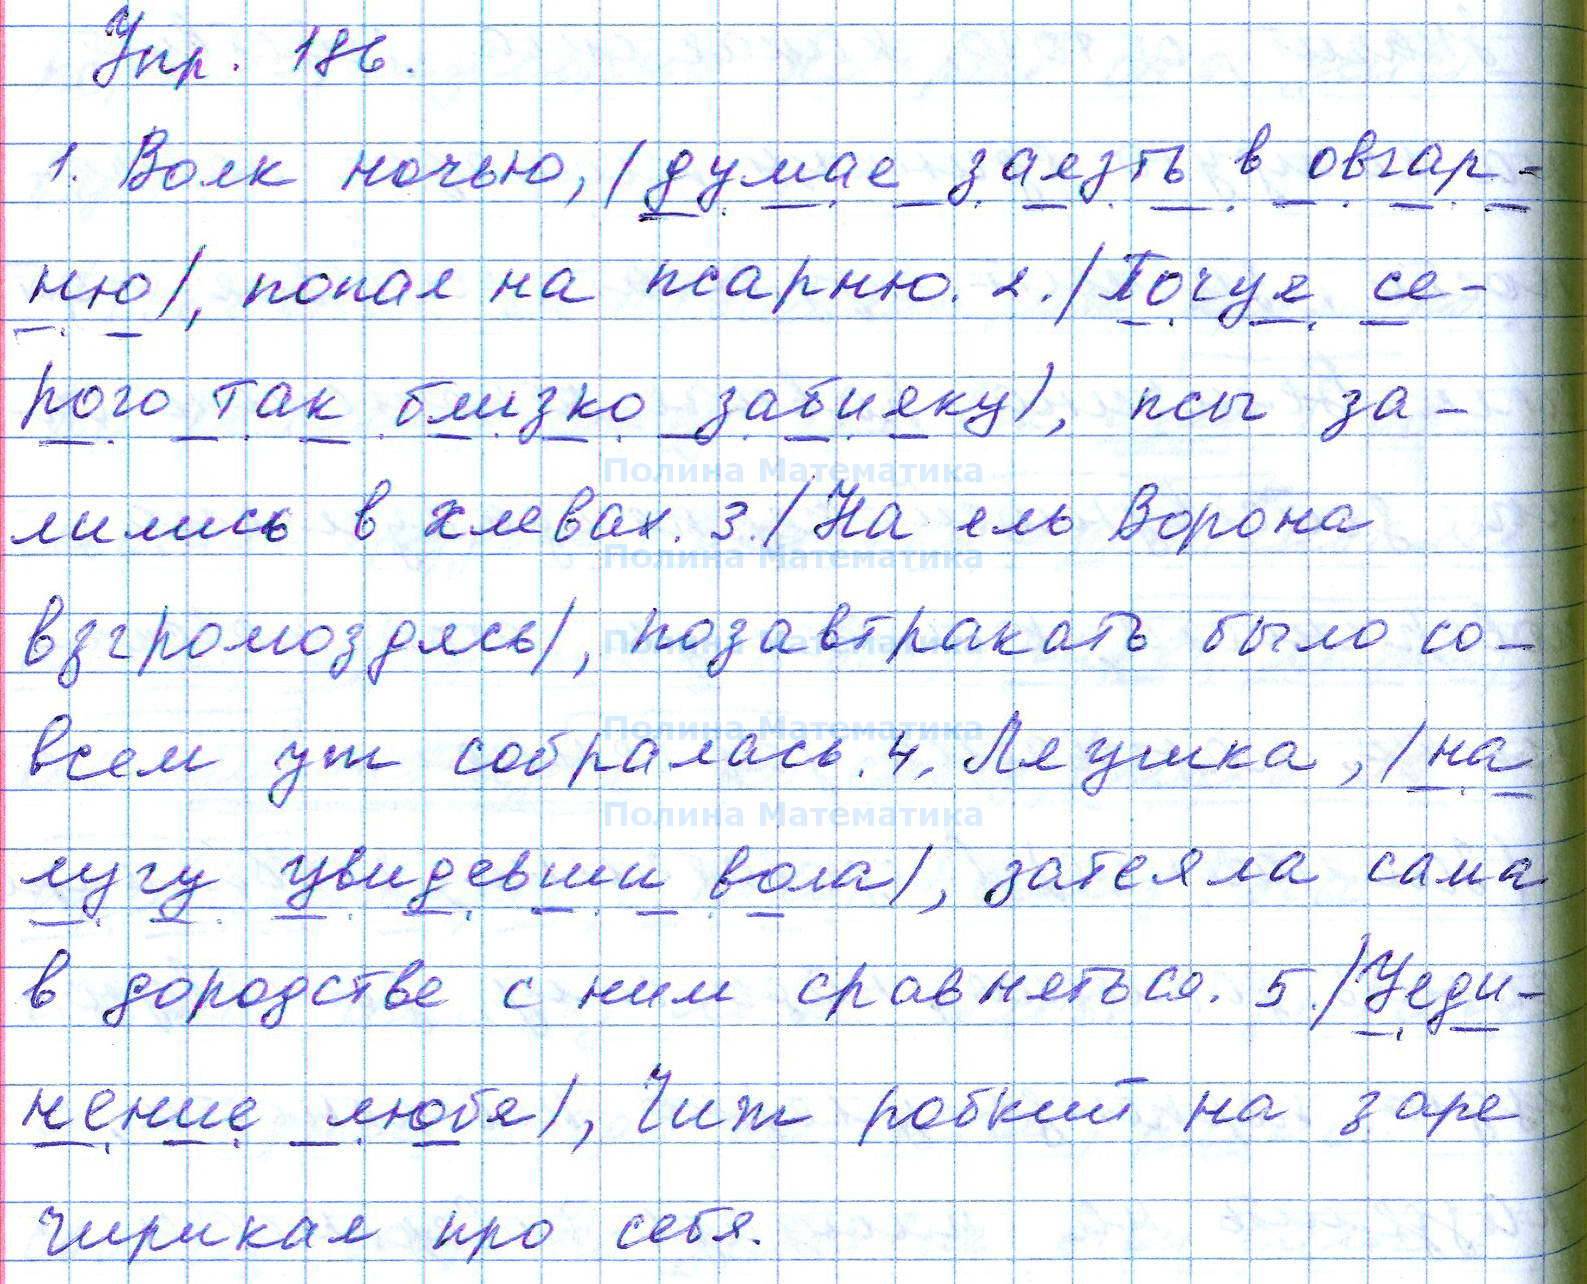 Упр. 186.
1. Волк ночью, /думая залезть в овчар-
ню/, попал на псарню. 2. /Почуя се-
рого так близко забияку/, псы за-
лились в хлевах. 3. /На ель Ворона
взгромоздясь/, позавтракать было со-
всем уж собралась. 4. Лягушка, /на
лугу увидевши вола/, затеяла сама
в дородстве с ним сравняться. 5. /Уеди-
нение любя/, Чиж робкий на заре
чирикал про себя.
Полина Математика
Полина Математика
Полина Математика
Полина Математика
Полина Математика